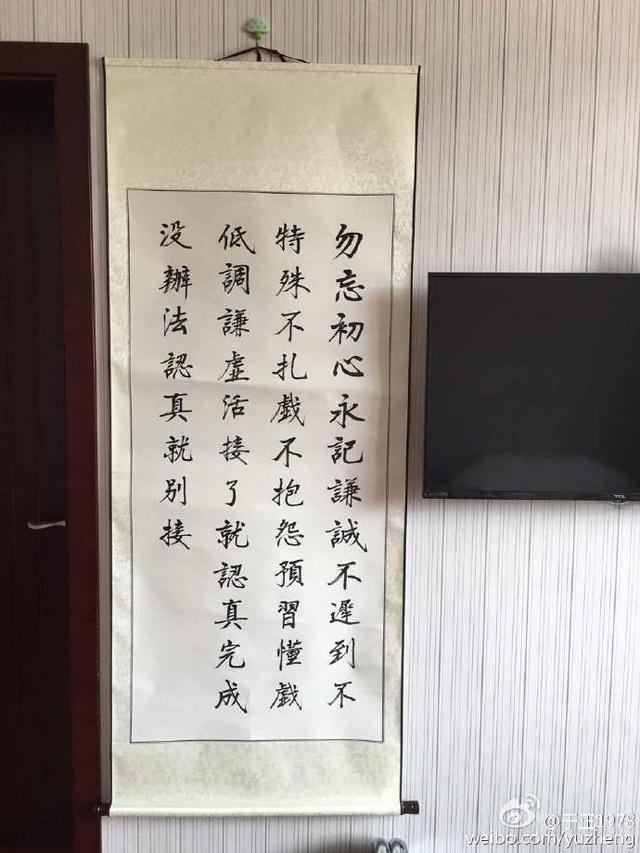 勿忘初心永記謙誠不遲到不
特殊不扎戲不抱怨預習懂戲
低調謙虛活接了就認真完成
没辦法認真就别接
TCL
@于正1978
weibo.com/yuzheng